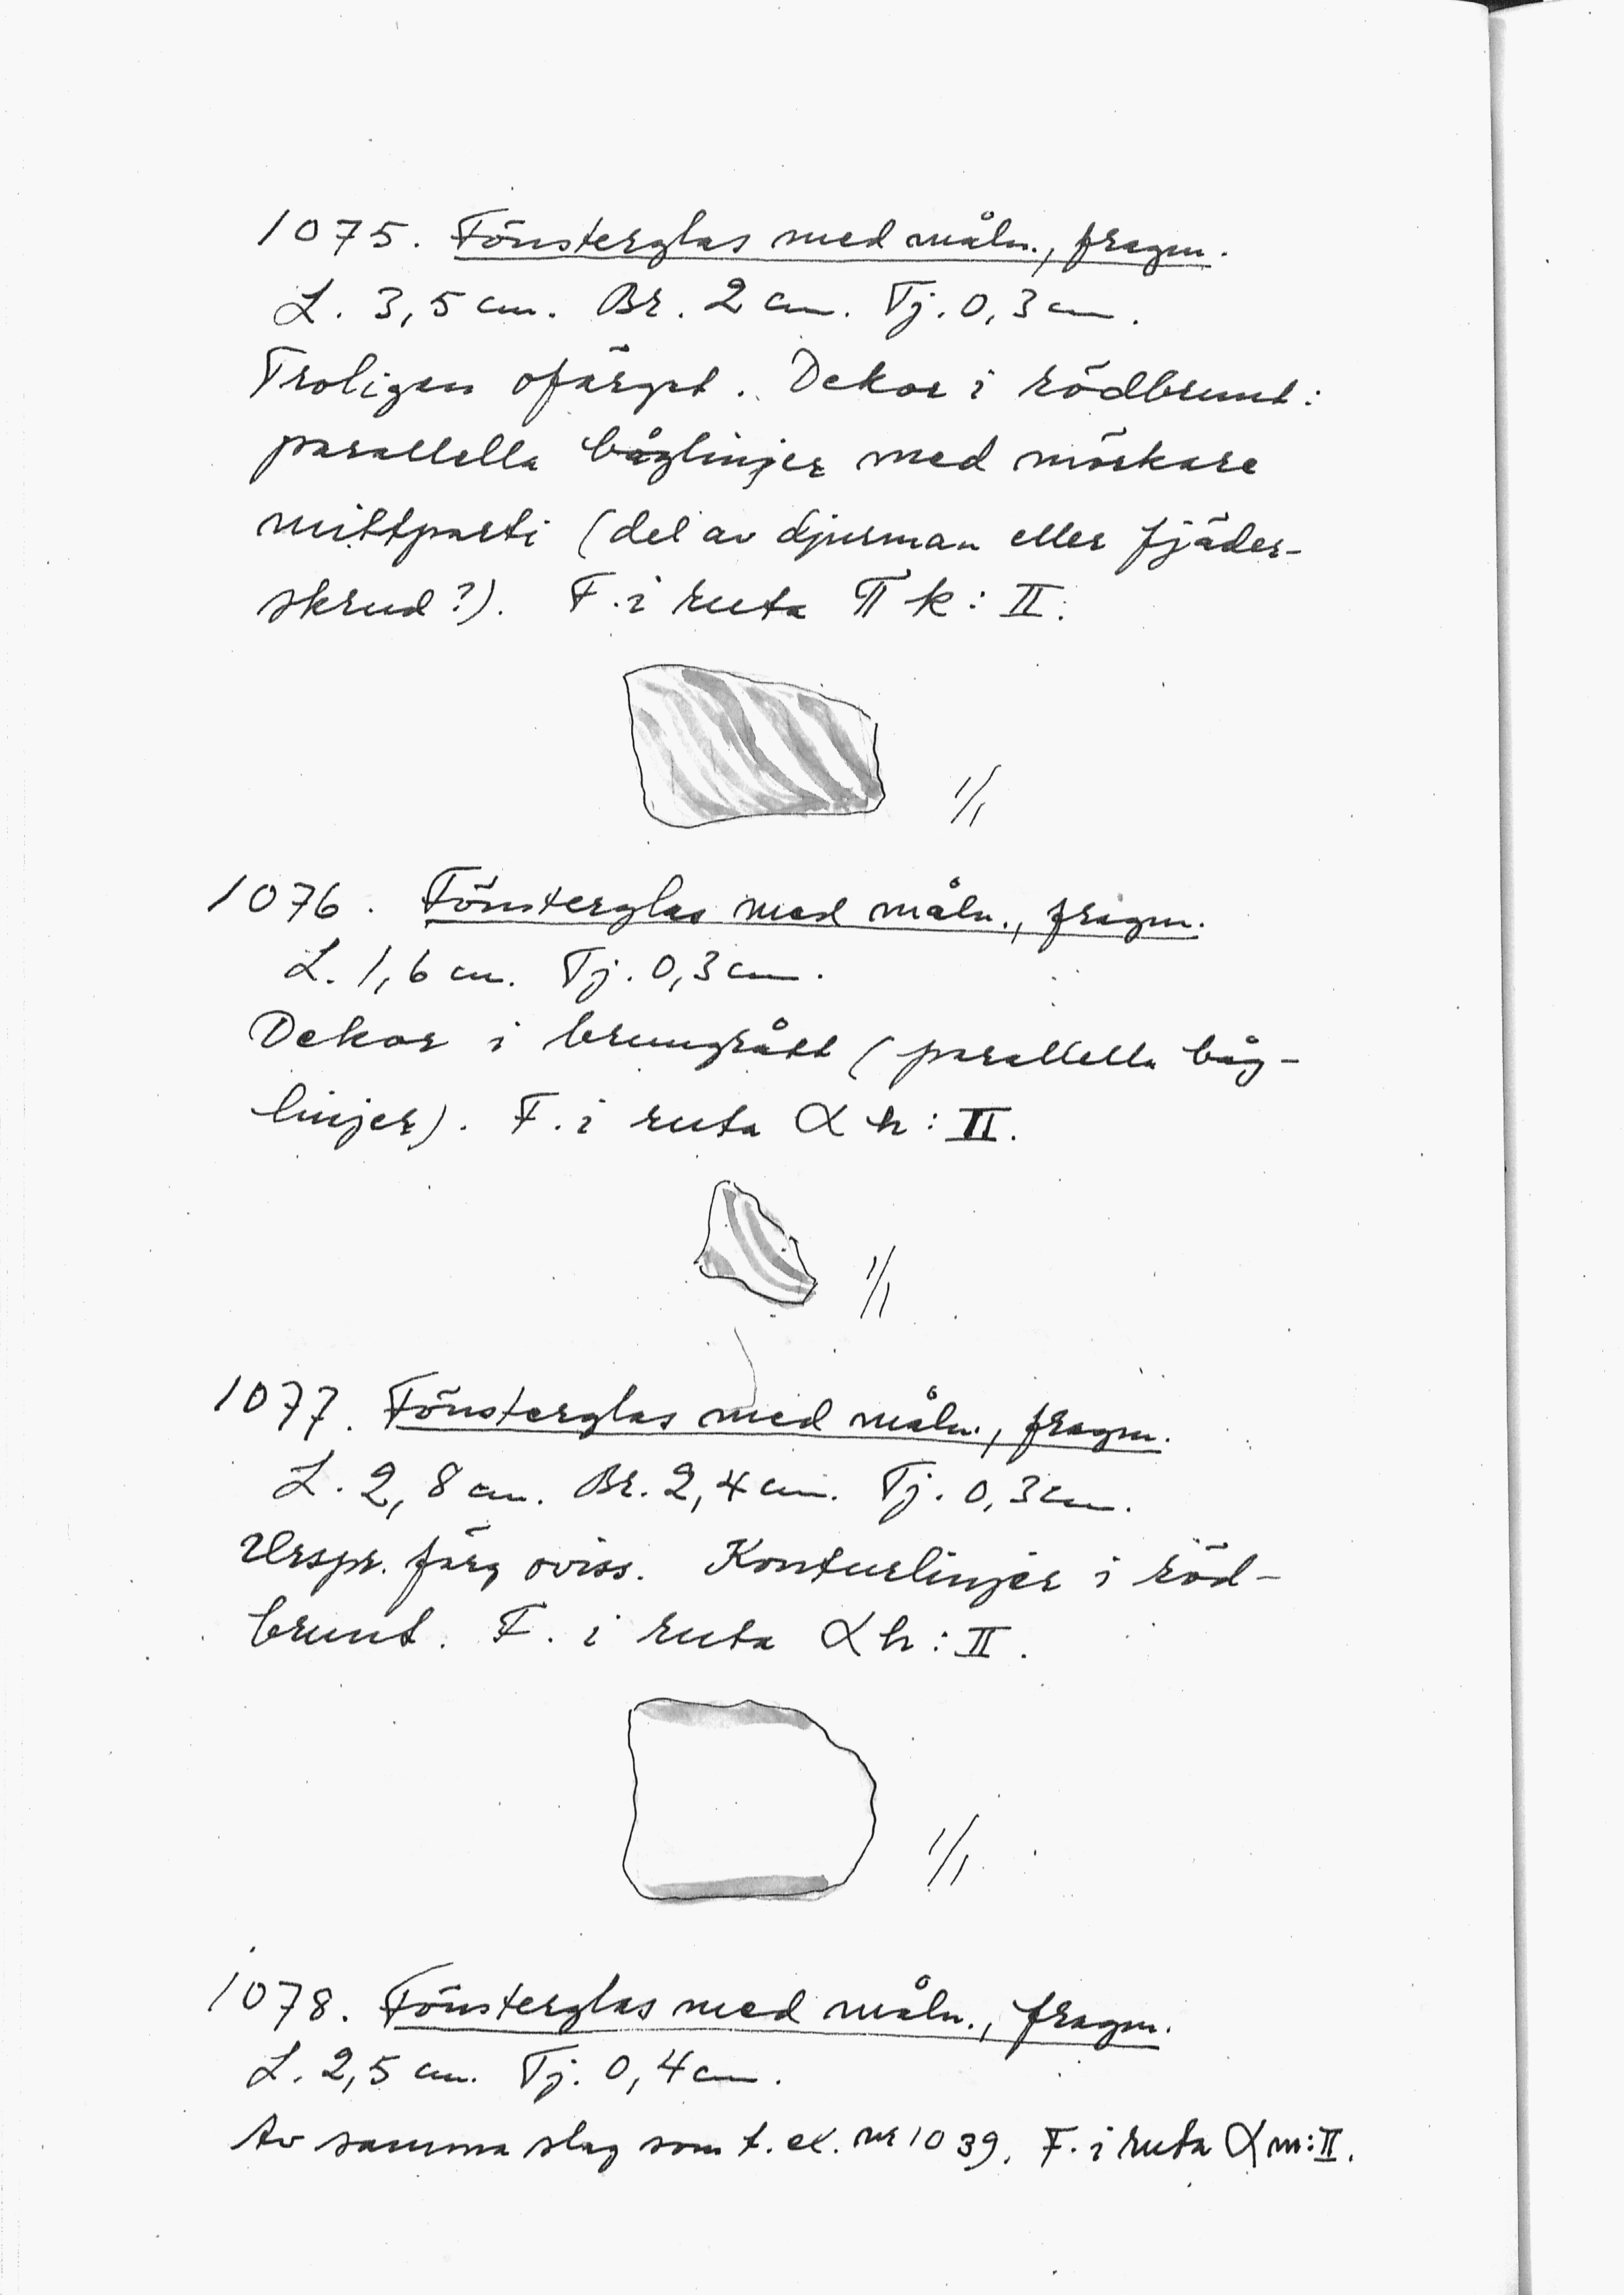 1075. Fönsterglas med måln., fragm.
L. 3,5 cm. Br. 2 cm. Tj. 0,3 cm.
Troligen ofärgat. Dekor i rödbrunt:
parallella båglinjer med mörkare
mittparti (del av djurman eller fjäder-
skrud?). F. i ruta π k : II.
1/1
1076. Fönsterglas med måln., fragm.
L. 1,6 cm. Tj. 0,3 cm.
Dekor i brungrått (parallella båg-
linjer). F. i ruta α h : II.
1/1
1077. Fönsterglas med måln., fragm.
L. 2,8 cm. Br. 2,4 cm. Tj. 0,3 cm.
Urspr. färg oviss. Konturlinjer i röd-
brunt. F. i ruta α h : II.
1/1
1078. Fönsterglas med måln., fragm.
L. 2,5 cm. Tj. 0,4 cm.
Av samma slag som t. ex. nr 1039. F. i ruta α m : II.